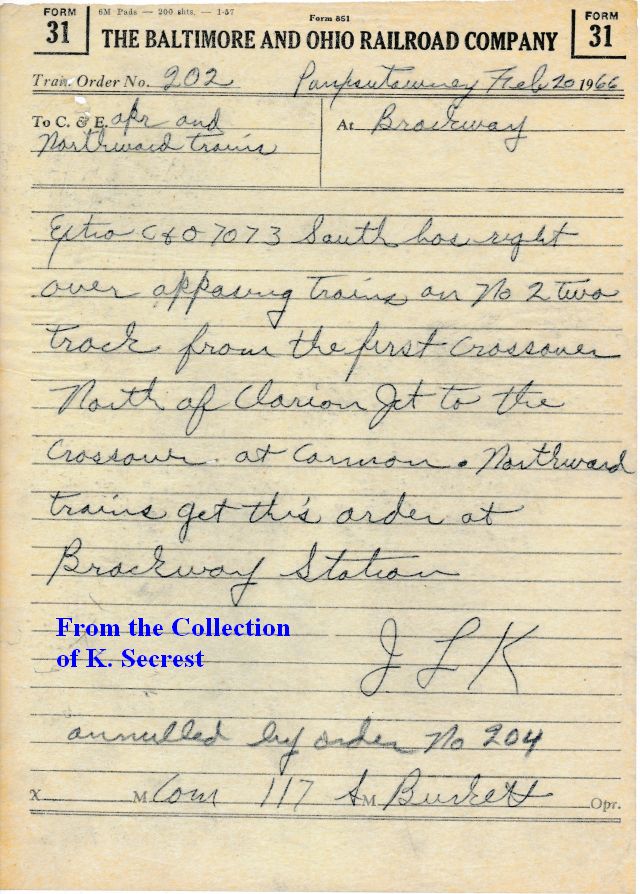 FORM 31
6M Pads — 200 shts. — 1-57
Form 851
FORM 31
THE BALTIMORE AND OHIO RAILROAD COMPANY
Train Order No. 202 Punxsutawney Feb 20 1966
To C. & E. opr and At Brockway
Northward trains
Extra C&O 7073 South has right
over opposing trains on No 2 two
track from the first crossover
North of Clarion Jct to the
crossover at Carman. Northward
trains get this order at
Brockway Station
From the Collection
of K. Secrest
J L K
annulled by order No 204
X M Com 117 A M Burkett Opr.